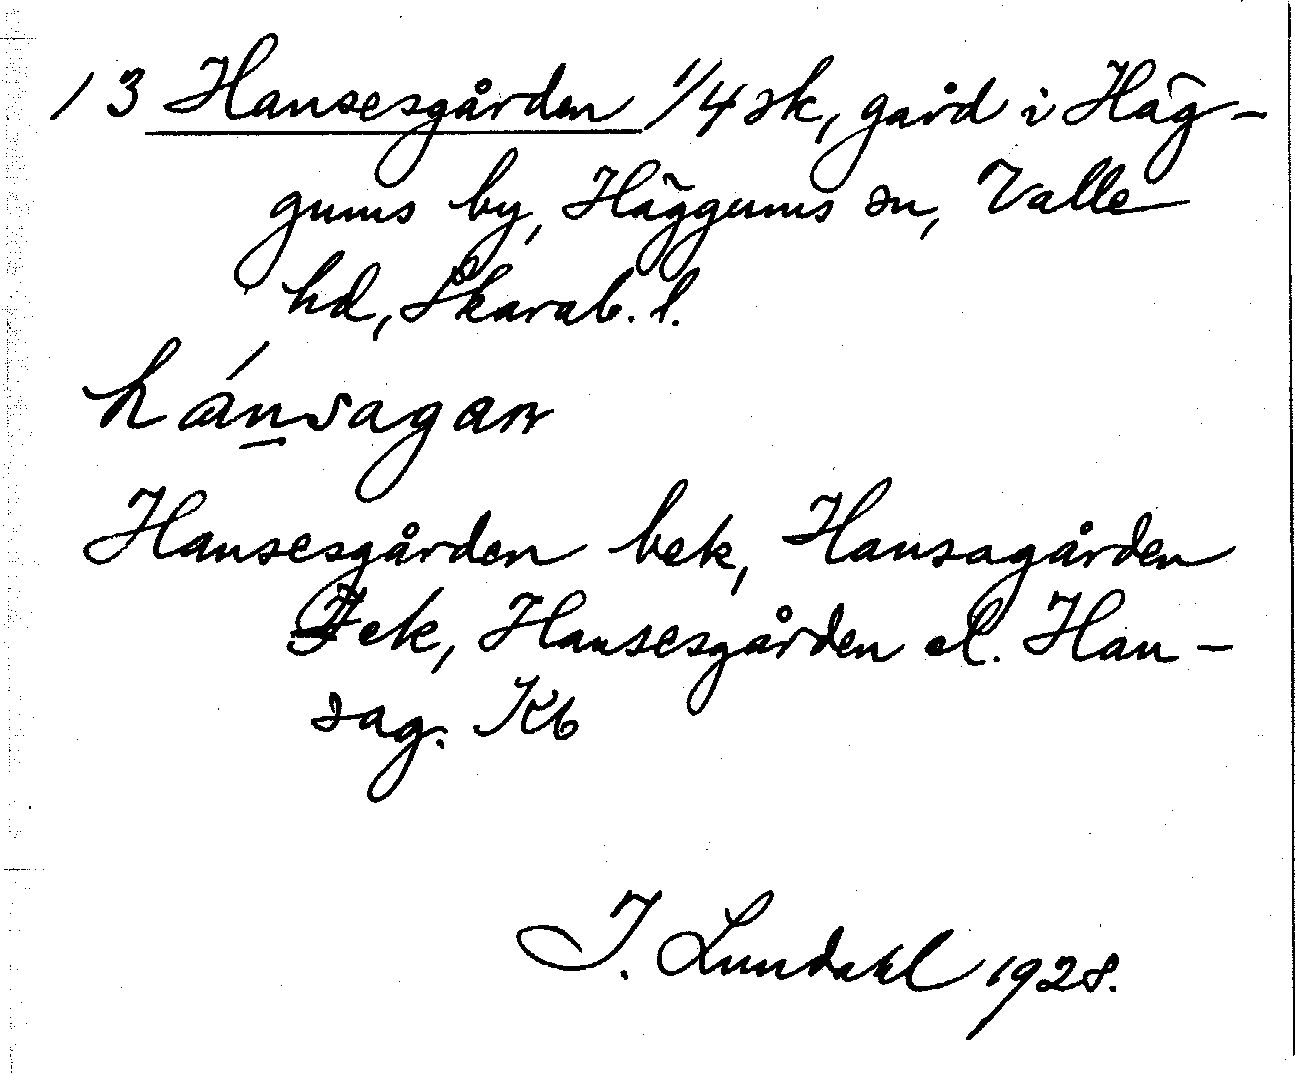 13 Hansesgården 1/4 sk, gård i Häg-
gums by, Häggums sn, Valle
hd, Skarab. l.
hánsagan
Hansesgården bek, Hansagården
Jek, Hansesgården el. Han-
sag. Kb
I. Lundahl 1928.